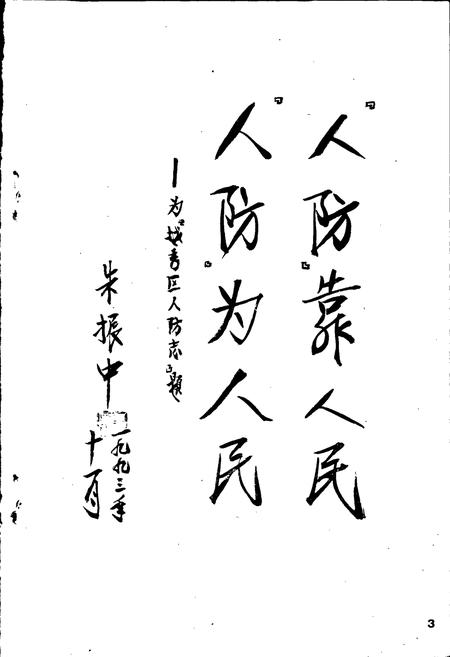 『人防』靠人民
『人防』为人民
—为『越秀区人防志』题
朱振中
一九九三年
十月
3